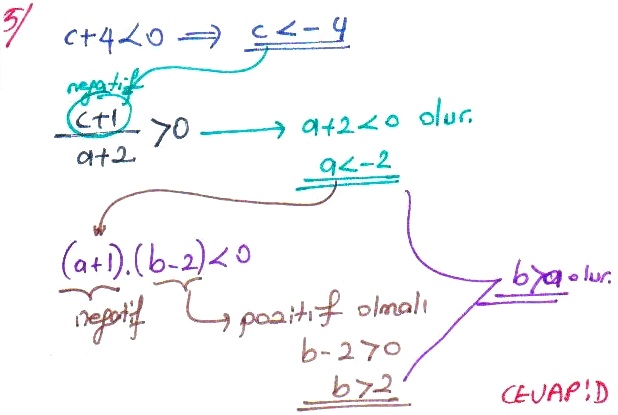 5/
c+4<0 ⇒ c<-4
negatif
c+1
a+2
>0 → a+2<0 olur.
a<-2
(a+1).(b-2)<0
negatif
pozitif olmalı
b-2>0
b>2
b>a olur.
CEVAP:D